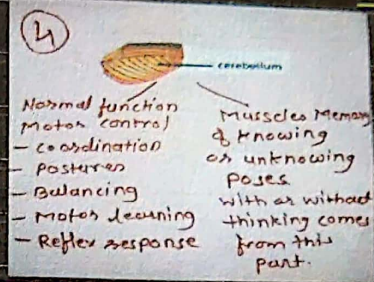 4
cerebellum
Normal function
Motor control
- Coordination
- Postures
- Balancing
- Motor learning
- Reflex response
Muscles Memory
of knowing
or unknowing
poses
with or without
thinking comes
from this
part.